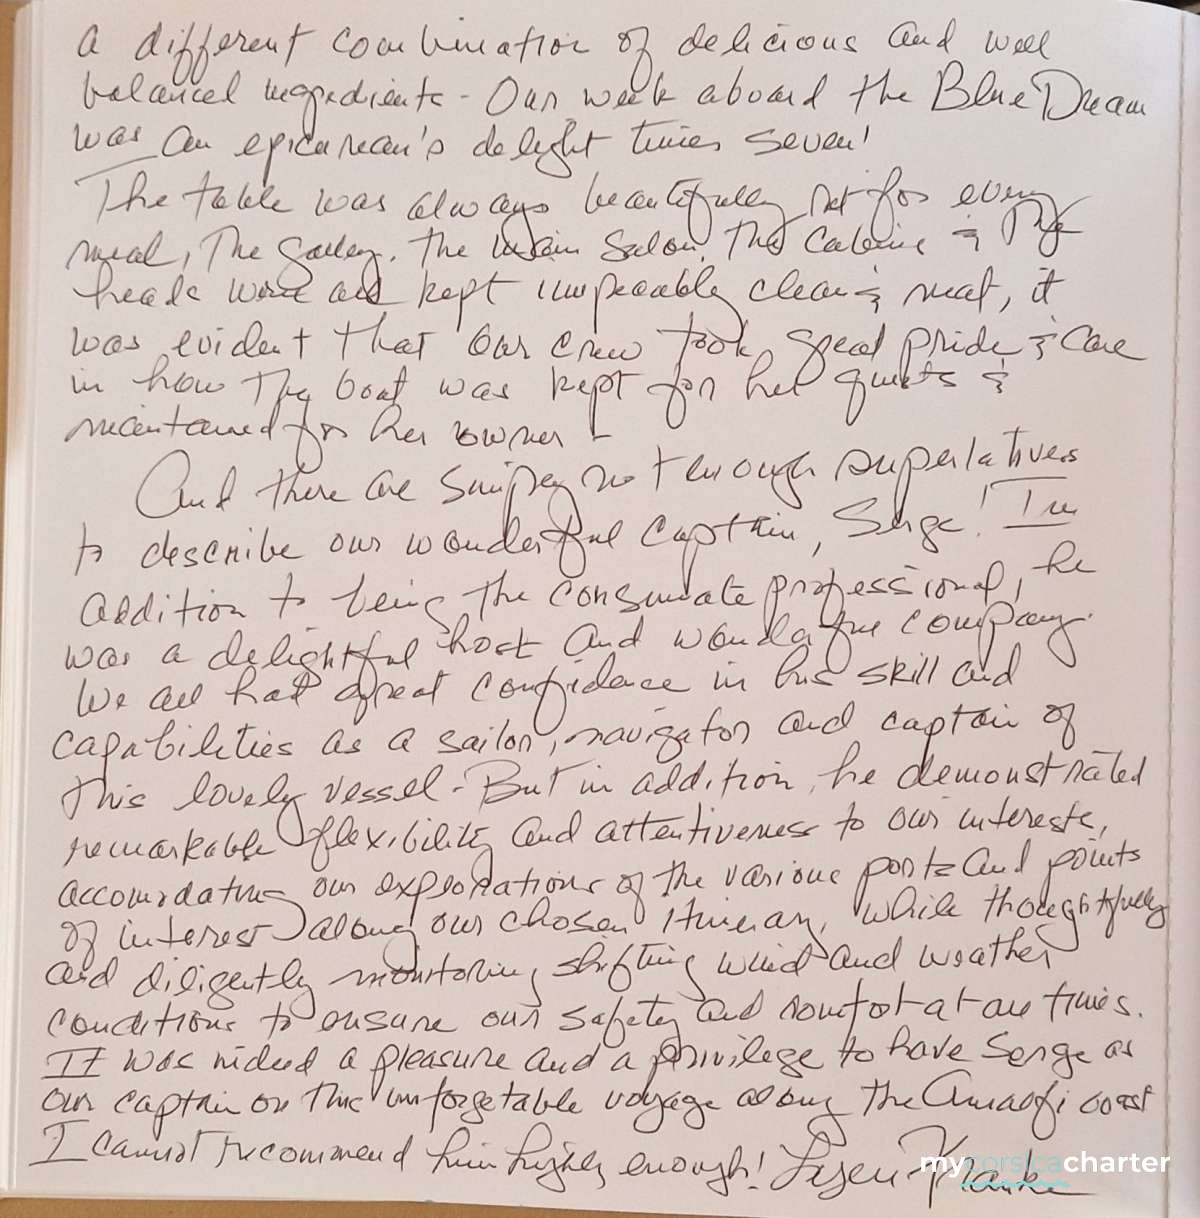 a different combination of delicious and well
balanced ingredients - Our week aboard the Blue Dream
was an epicurean's delight times seven!
The table was always beautifully set for every
meal, The Galley, the main Salon, the cabins & the
heads were all kept impecably clean & neat, it
was evident that our crew took great pride & care
in how the boat was kept for her guests &
maintained for her owner -
And there are simply not enough superlatives
to describe our wonderful Captain, Serge! In
addition to being the consumate professional, he
was a delightful host and wonderful company.
We all had great confidence in his skill and
capabilities as a sailor, navigator and captain of
this lovely vessel - But in addition, he demonstrated
remarkable flexibility and attentiveness to our interests,
accomodating our explorations of the various ports and points
of interest along our chosen itinerary, while thoughtfully
and diligently monitoring shifting wind and weather
conditions to ensure our safety and comfort at all times.
It was indeed a pleasure and a privilege to have Serge as
our captain on this unforgetable voyage along the Amalfi coast
I cannot recommend him highly enough!
mycorsicacharter